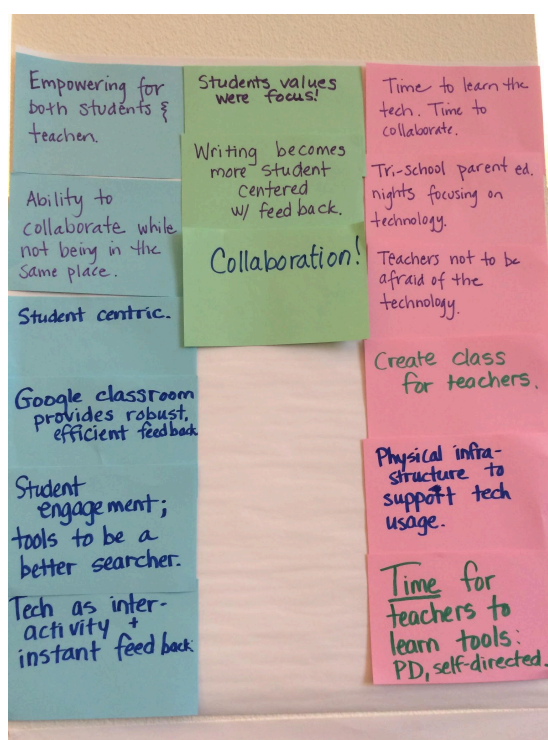 Empowering for
both students &
teachen.
Ability to
collaborate while
not being in the
same place.
Student centric.
Google classroom
provides robust,
efficient feedback
Student
engagement;
tools to be a
better searcher.
Tech as inter-
activity +
instant feedback
Students values
were focus!
Writing becomes
more student
centered
w/ feedback.
Collaboration!
Time to learn the
tech. Time to
collaborate.
Tri-school parent ed.
nights focusing on
technology.
Teachers not to be
afraid of the
technology.
Create class
for teachers.
Physical infra-
structure to
support tech
usage.
Time for
teachers to
learn tools:
PD, self-directed.